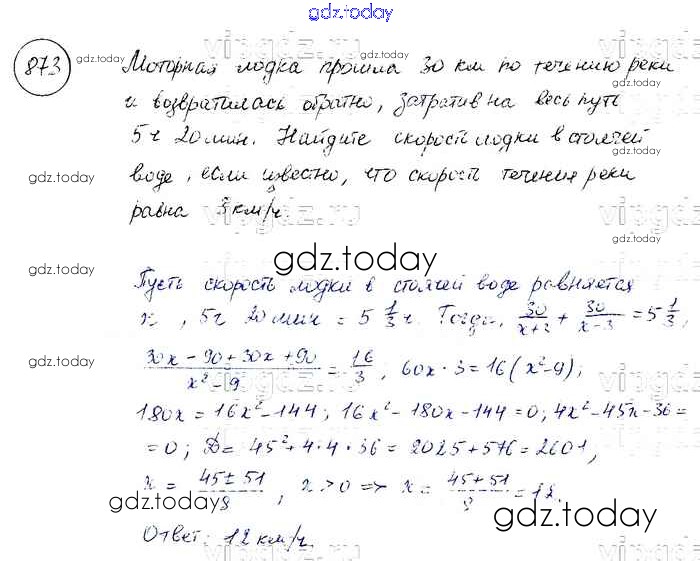 gdz.today
873
Моторная лодка прошла 30 км по течению реки
и возвратилась обратно, затратив на весь путь
5 ч 20 мин. Найдите скорость лодки в стоячей
воде, если известно, что скорость течения реки
равна 3 км/ч.
Пусть скорость лодки в стоячей воде равняется
x, 5ч 20 мин = 5 1/3 ч. Тогда, 30/(x+3) + 30/(x-3) = 5 1/3,
(30x - 90 + 30x + 90)/(x² - 9) = 16/3, 60x · 3 = 16(x² - 9);
180x = 16x² - 144; 16x² - 180x - 144 = 0; 4x² - 45x - 36 =
= 0; D = 45² + 4 · 4 · 36 = 2025 + 576 = 2601,
x = (45 ± 51)/8, x > 0 => x = (45 + 51)/8 = 12.
Ответ: 12 км/ч.